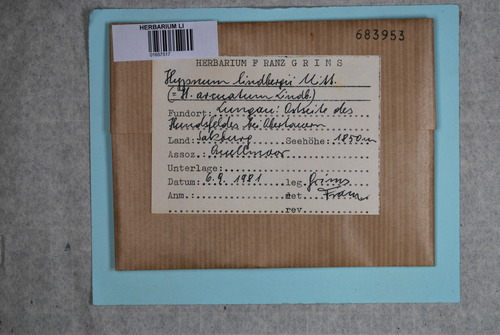 HERBARIUM LI
01657517
683953
HERBARIUM FRANZ GRIMS
Hypnum lindbergii Mitt.
(= H. arcuatum Lindb.)
Fundort: Lungau: Ostseite des
Hundsfeldes bei Obertauern
Land: Salzburg Seehöhe: 1850m
Assoz. Quellmoor
Unterlage:
Datum: 6.9.1981 leg. Grims
Anm.: det. Franz
rev.